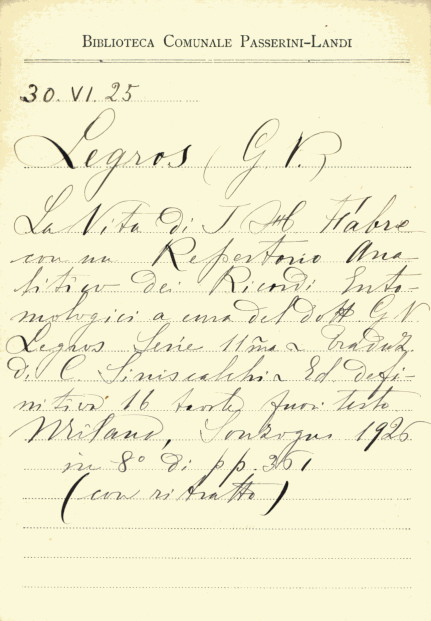 BIBLIOTECA COMUNALE PASSERINI-LANDI
30. VI. 25
Legros (G V.)
La Vita di J H Fabre
con un Repertorio Ana-
litico dei Ricordi Ento-
mologici a cura del dott G V
Legros Serie 11ma Traduz.
di C Siniscalchi Ed defi-
nitiva 16 tavole fuori testo
Milano, Sonzogno 1926
in 8° di pp. 361
(con ritratto)